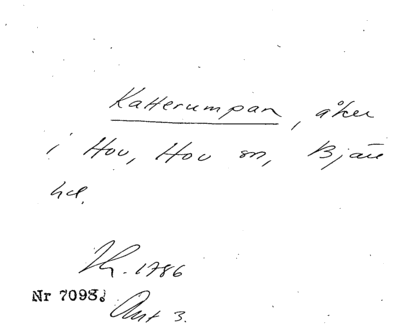 Katterumpan, åker
i Hov, Hov sn, Bjäre
hd.
Lh. 1786
Nr 7098.
Akt 3.